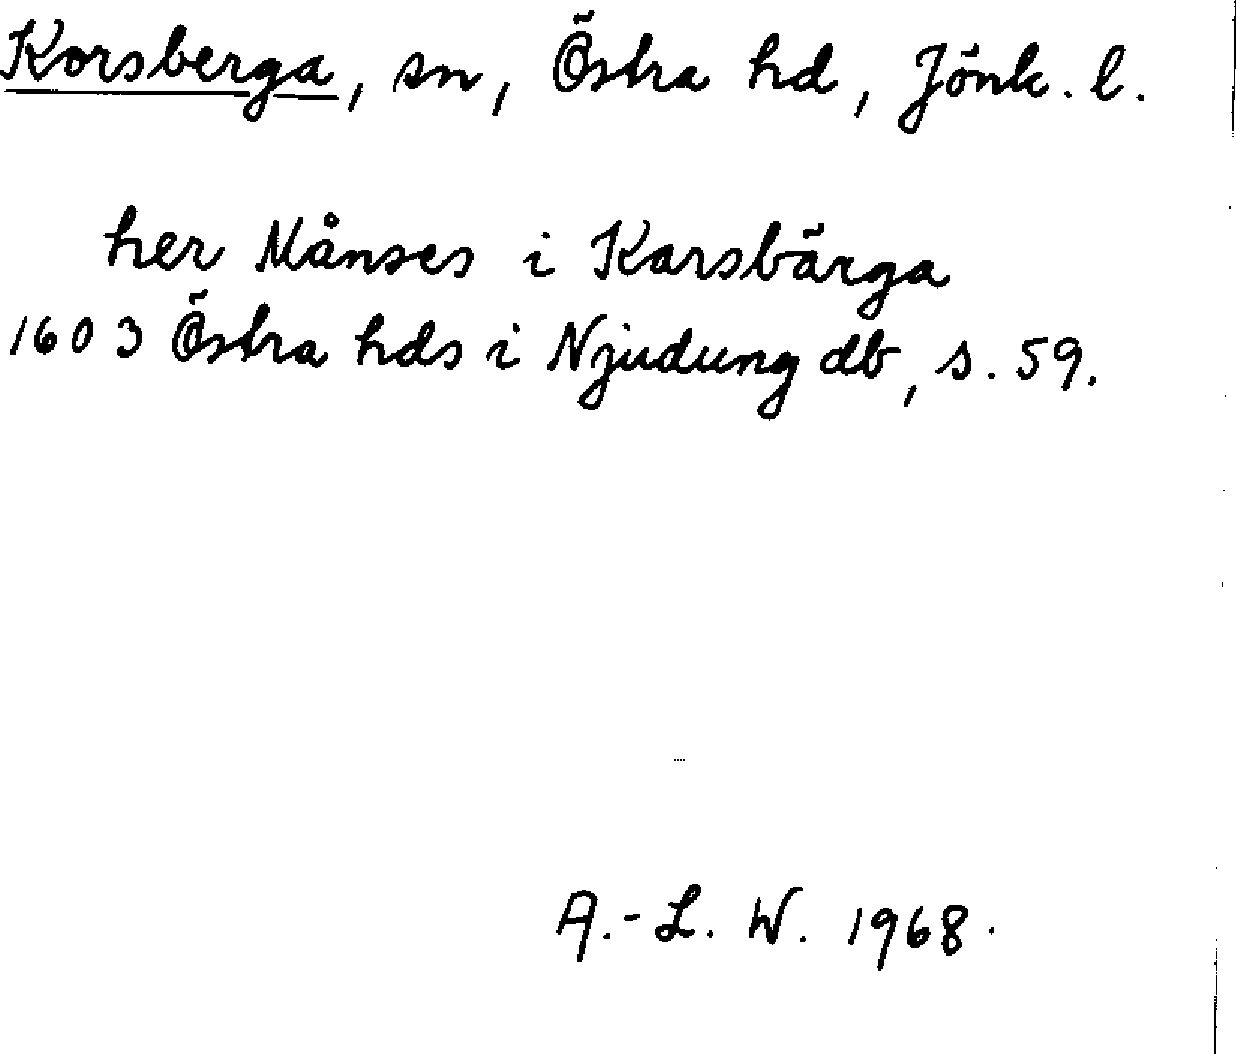 Korsberga, sn, Östra hd, Jönk. l.
her Månses i Karsbärga
1603 Östra hds i Njudung db, s. 59.
A.-L. W. 1968.